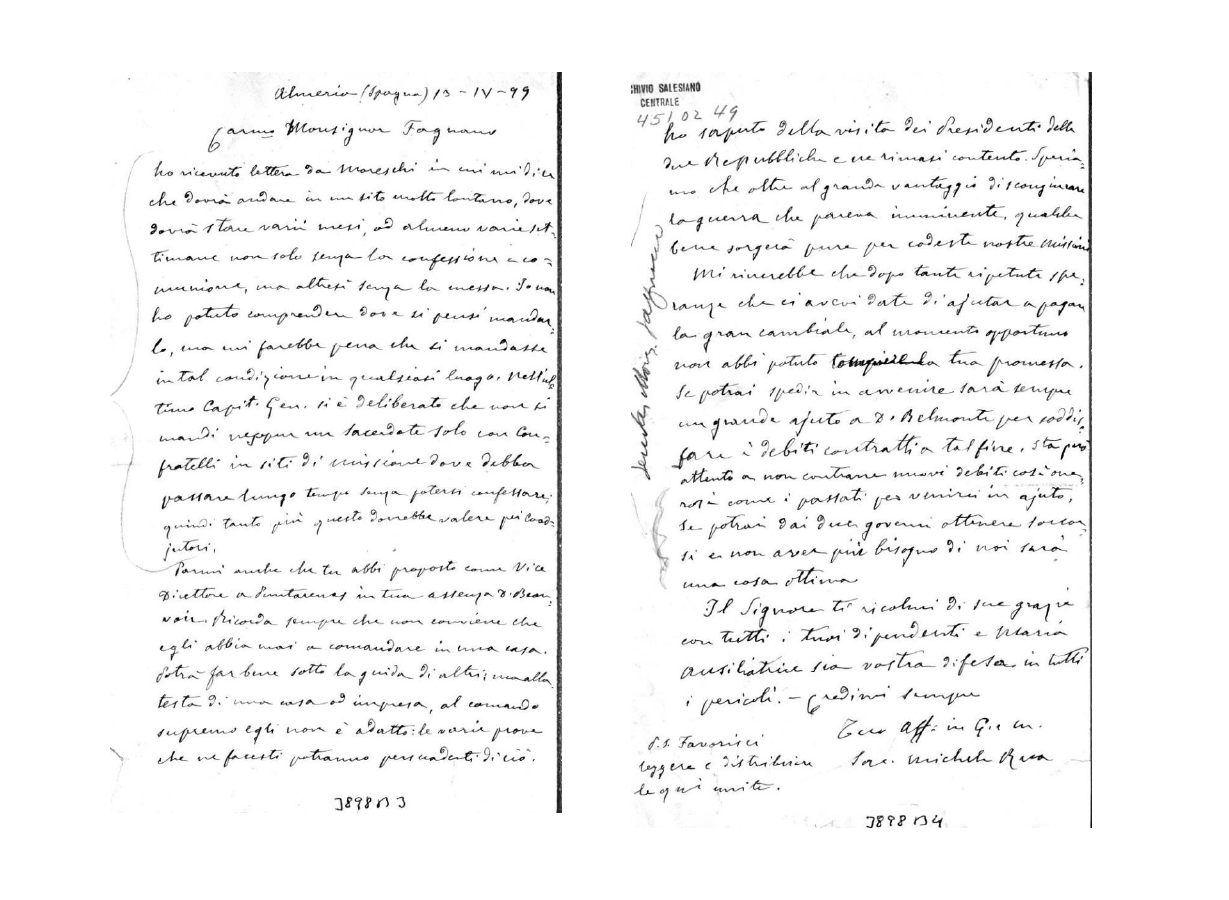 Almeria (Spagna) 13 - IV - 99
Carmo Monsignor Fagnano
ho ricevuto lettera da Moreschi in cui mi dice
che dovrà andare in un sito molto lontano, dove
dovrà stare varii mesi, od almeno varie set-
timane non solo senza la confessione e co-
munione, ma altresì senza la messa. Io non
ho potuto comprendere dove si pensi mandar-
lo, ma mi farebbe pena che si mandasse
in tal condizione in qualsiasi luogo. Nell'ul-
timo Capit. Gen. si è deliberato che non si
mandi neppur un Sacerdote solo con Con-
fratelli in siti di missione dove debba
passare lungo tempo senza potersi confessare;
quindi tanto più questo dovrebbe valere pei Coad-
jutori.
Parmi anche che tu abbi proposto come Vice
Direttore a Puntarenas in tua assenza D. Beau-
voir. Ricorda sempre che non conviene che
egli abbia mai a comandare in una casa.
Potrà far bene sotto la guida di altri; ma alla
testa di una casa od impresa, al comando
supremo egli non è adatto: le varie prove
che ne facesti potranno persuaderti di ciò.
3898 B 3
CHIVIO SALESIANO
CENTRALE
451,02 49
ho saputo della visita dei Presidenti delle
due Repubbliche e ne rimasi contento. Speria-
mo che oltre al grande vantaggio di scongiurare
la guerra che pareva imminente, qualche
bene sorgerà pure per codeste nostre Missioni
Mi rincrebbe che dopo tante ripetute spe-
ranze che ci avevi date di ajutar a pagar
la gran cambiale, al momento opportuno
non abbi potuto la tua promessa.
Se potrai spedir in avvenire sarà sempre
un grande ajuto a D. Belmonte per soddis-
fare i debiti contratti a tal fine. Sta però
attento a non contrarre nuovi debiti così one-
rosi come i passati per venirci in ajuto.
Se potrai dai due governi ottenere soccor-
si e non aver più bisogno di noi sarà
una cosa ottima
Il Signore ti ricolmi di sue grazie
con tutti i tuoi dipendenti e Maria
Ausiliatrice sia vostra difesa in tutti
i pericoli. - Credimi sempre
Tuo Aff. in G. e M.
Sac. Michele Rua
P.S. Favorisci
leggere e distribuire
le qui unite.
3898 B4